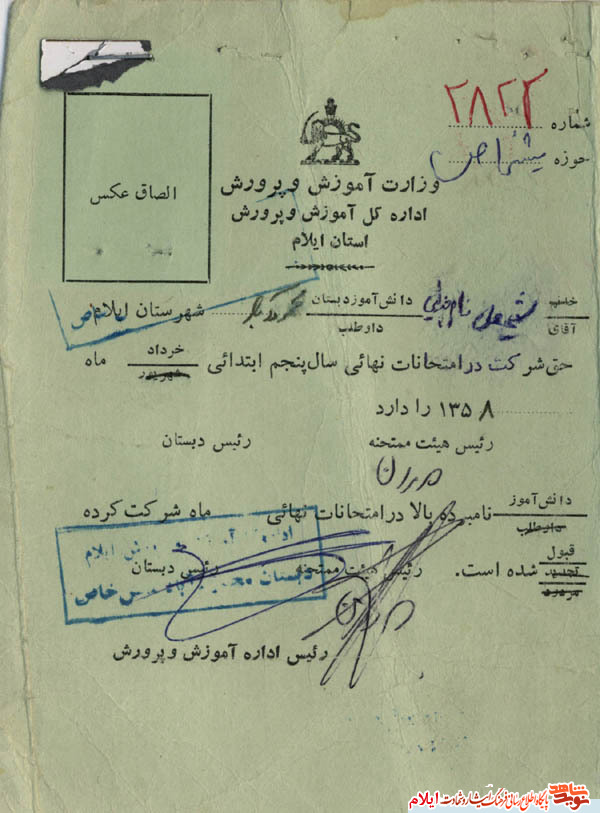 شماره ۲۸۲۲
حوزه
الصاق عکس
وزارت آموزش و پرورش
اداره کل آموزش و پرورش
استان ایلام
خانم
آقای
دانش آموز دبستان
داوطلب
شهرستان ایلام
خاص
حق شرکت در امتحانات نهائی سال پنجم ابتدائی خرداد ماه
شهریور
۱۳۵۸ را دارد
رئیس هیئت ممتحنه رئیس دبستان
دانش آموز نامبرده بالا در امتحانات نهائی ماه شرکت کرده
داوطلب
قبول
تجدید شده است. رئیس هیئت ممتحنه رئیس دبستان
مردود
ایلام
دبستان خاص
رئیس اداره آموزش و پرورش
نوید شاهد پایگاه اطلاع رسانی فرهنگ ایثار و شهادت ایلام